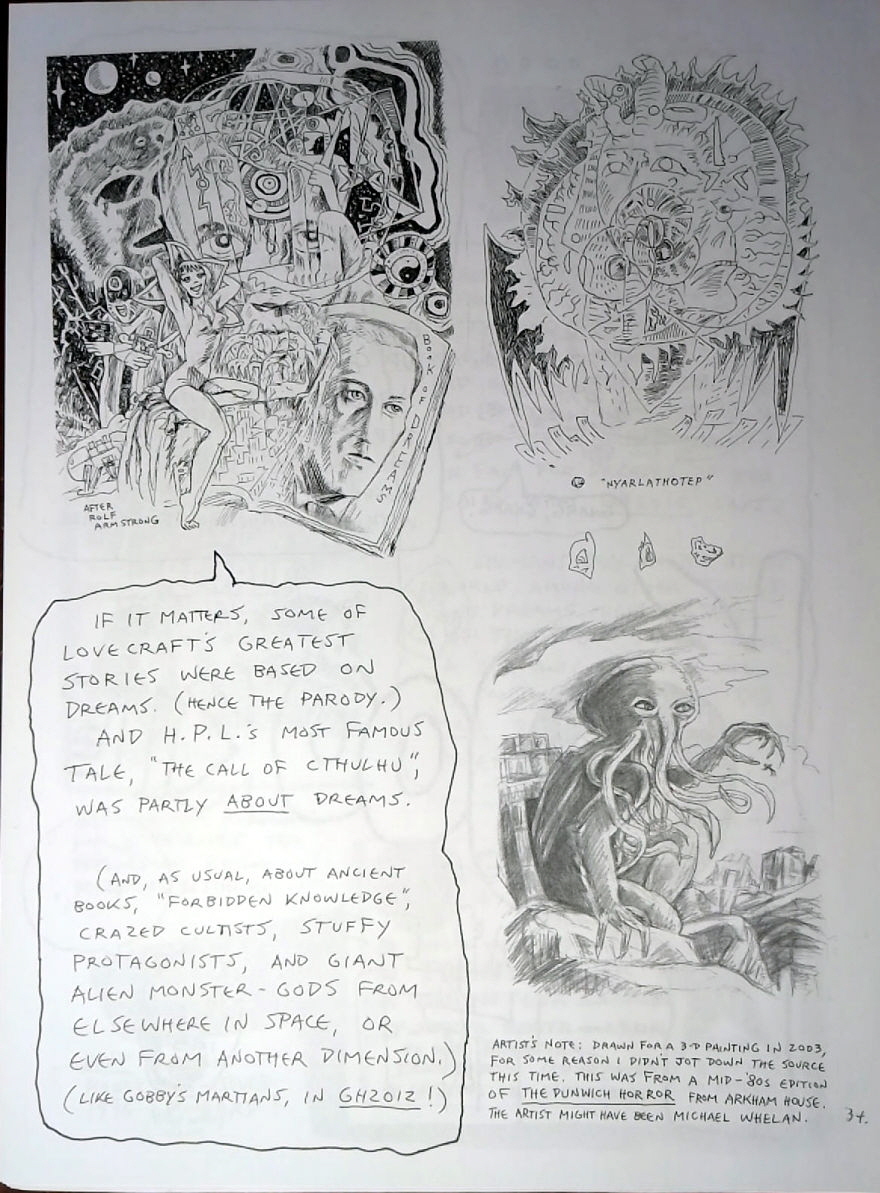 BOOK OF DREAMS
AFTER
ROLF
ARMSTRONG
"NYARLATHOTEP"
IF IT MATTERS, SOME OF
LOVECRAFT'S GREATEST
STORIES WERE BASED ON
DREAMS. (HENCE THE PARODY.)
AND H.P.L.'S MOST FAMOUS
TALE, "THE CALL OF CTHULHU",
WAS PARTLY ABOUT DREAMS.
(AND, AS USUAL, ABOUT ANCIENT
BOOKS, "FORBIDDEN KNOWLEDGE",
CRAZED CULTISTS, STUFFY
PROTAGONISTS, AND GIANT
ALIEN MONSTER-GODS FROM
ELSEWHERE IN SPACE, OR
EVEN FROM ANOTHER DIMENSION.)
(LIKE GOBBY'S MARTIANS, IN GH2012!)
ARTIST'S NOTE: DRAWN FOR A 3-D PAINTING IN 2003,
FOR SOME REASON I DIDN'T JOT DOWN THE SOURCE
THIS TIME. THIS WAS FROM A MID-'80s EDITION
OF THE DUNWICH HORROR FROM ARKHAM HOUSE.
THE ARTIST MIGHT HAVE BEEN MICHAEL WHELAN.
34.